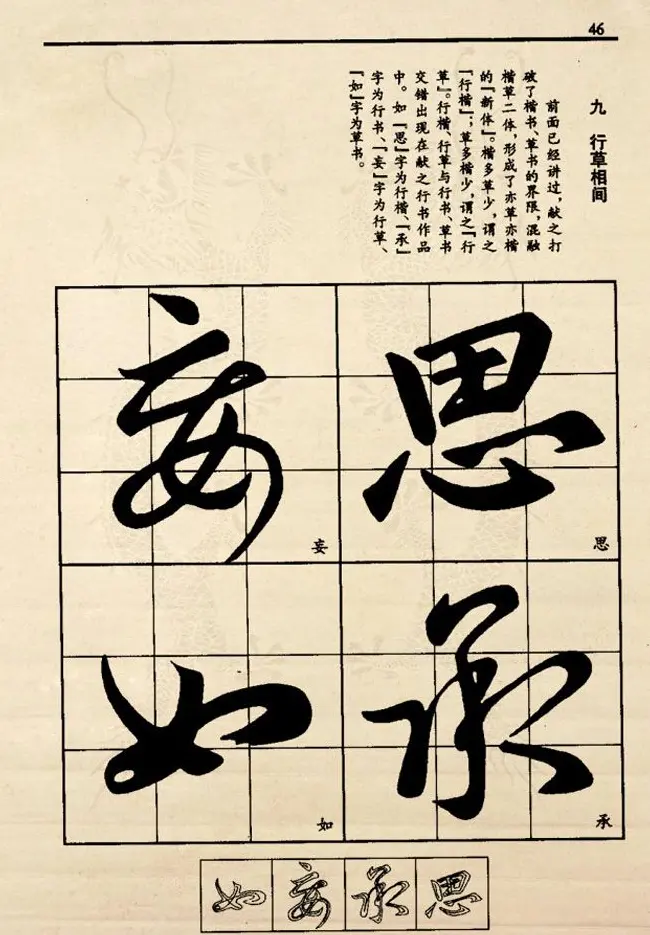 46
九 行草相间
前面已经讲过，献之打
破了楷书、草书的界限，混融
楷草二体，形成了亦草亦楷
的『新体』。楷多草少，谓之
『行楷』；草多楷少，谓之『行
草』。行楷、行草与行书、草书
交错出现在献之行书作品
中。如『思』字为行楷、『承』
字为行书、『妄』字为行草、
『如』字为草书。
思
思
承
承
妄
妄
如
如
如 妄 承 思